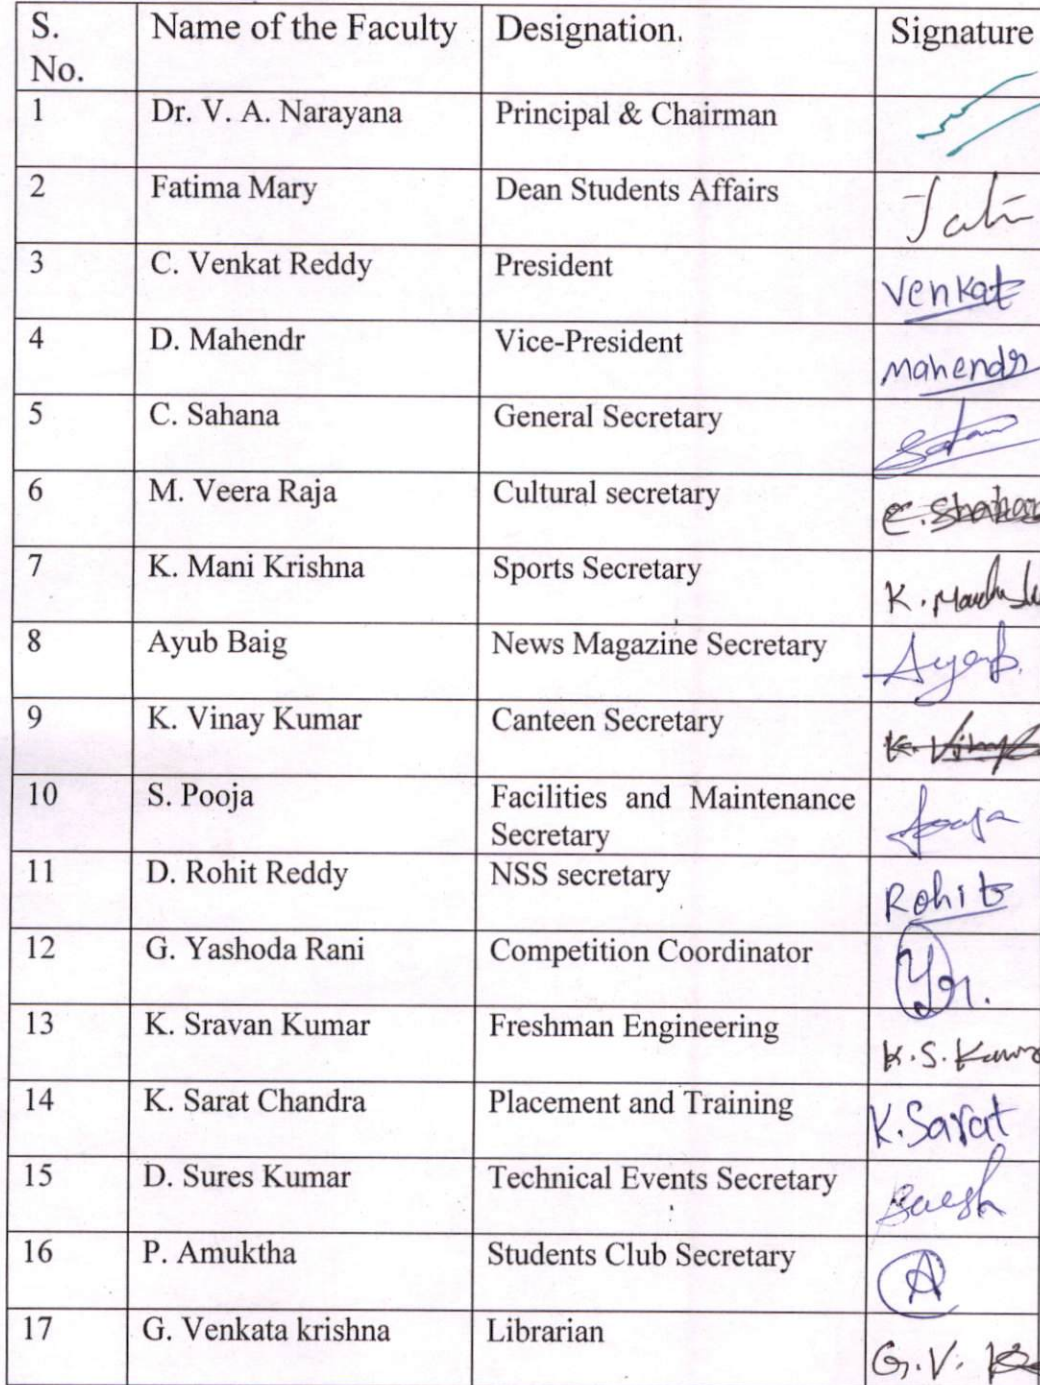 S. No. Name of the Faculty Designation. Signature
1 Dr. V. A. Narayana Principal & Chairman
2 Fatima Mary Dean Students Affairs
3 C. Venkat Reddy President Venkat
4 D. Mahendr Vice-President Mahendr
5 C. Sahana General Secretary
6 M. Veera Raja Cultural secretary
7 K. Mani Krishna Sports Secretary K.
8 Ayub Baig News Magazine Secretary Ayub.
9 K. Vinay Kumar Canteen Secretary K.
10 S. Pooja Facilities and Maintenance
Secretary
11 D. Rohit Reddy NSS secretary Rohit
12 G. Yashoda Rani Competition Coordinator
13 K. Sravan Kumar Freshman Engineering K.S.
14 K. Sarat Chandra Placement and Training K.Sarat
15 D. Sures Kumar Technical Events Secretary
16 P. Amuktha Students Club Secretary A
17 G. Venkata krishna Librarian G.V.